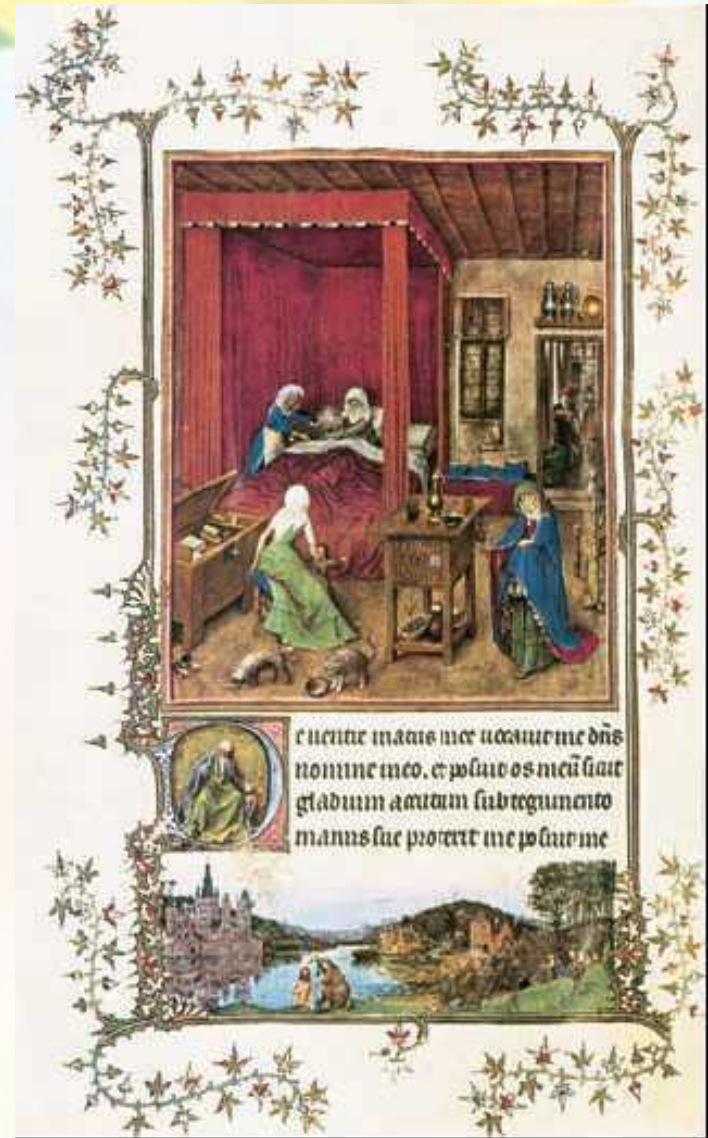 De uentre matris mee uocauit me dñs
nomine meo. et posuit os meū sicut
gladium acutum sub tegumento
manus sue protexit me posuit me